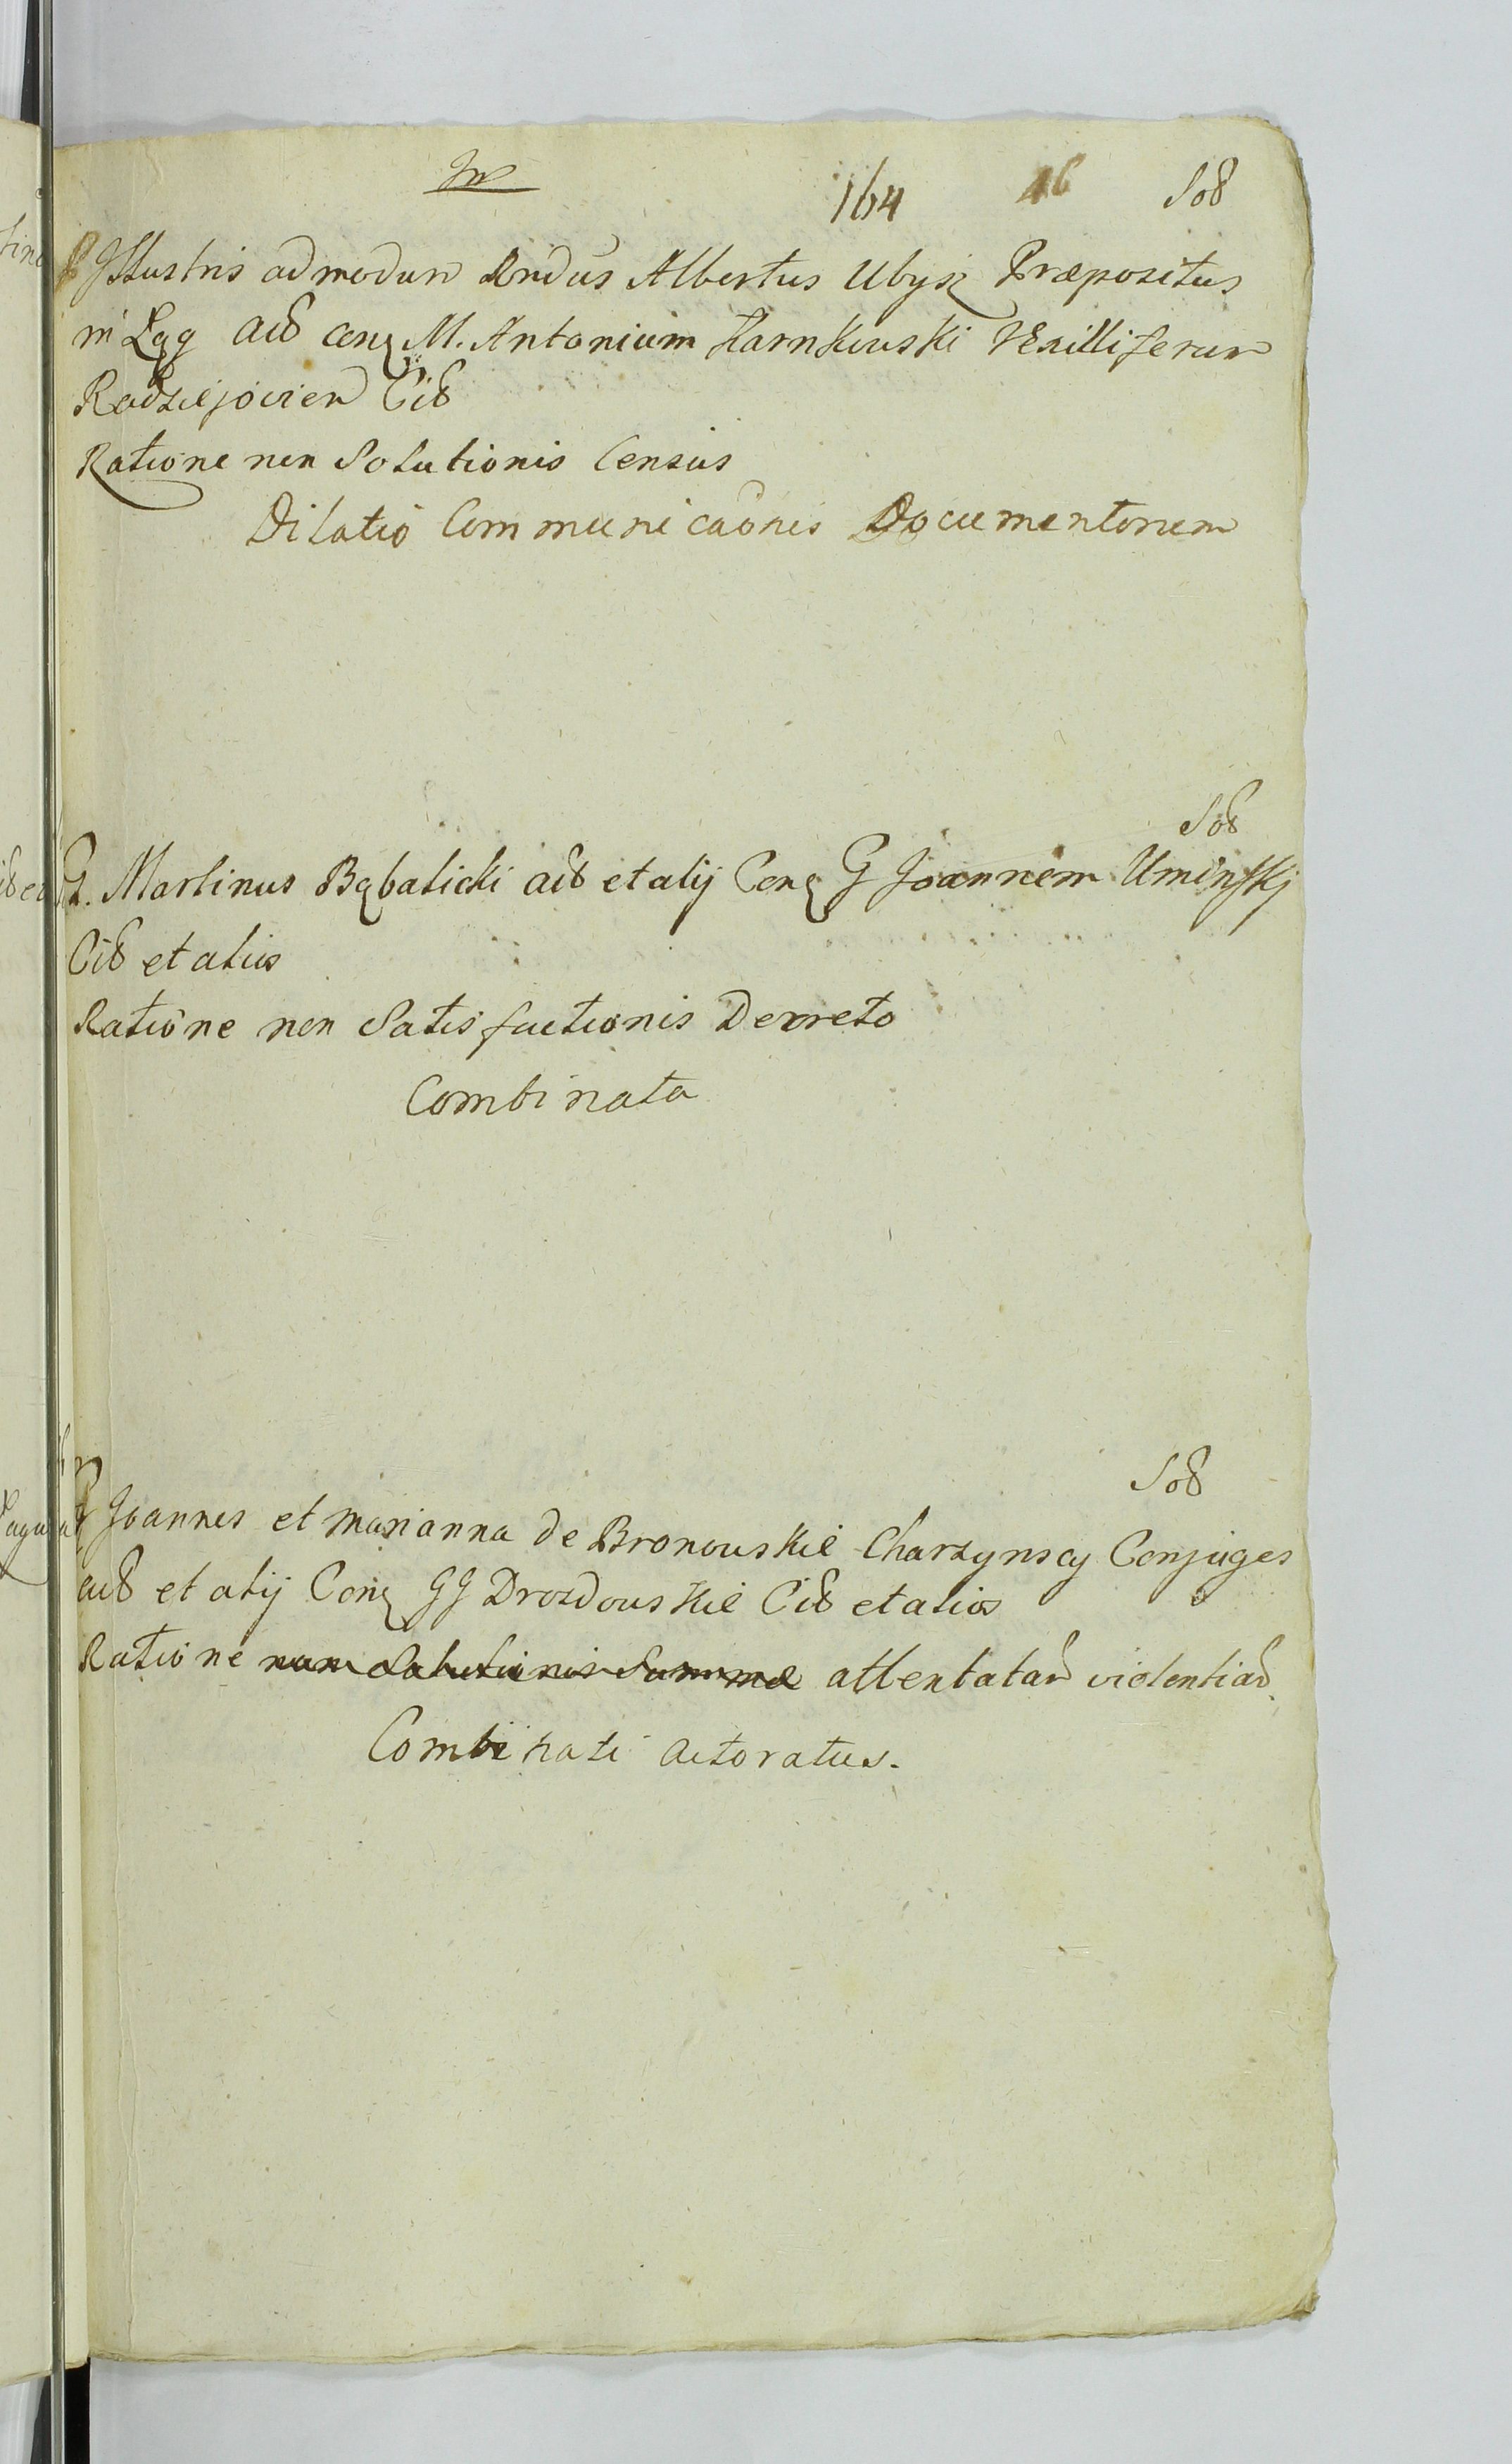 164 46 Sol
Illustris admodum Rndus Albertus Ubysz Præpositus
in Łąg act conq M. Antonium Karnkowski Vexilliferum
Radziejovien Cit
Ratione non Solutionis Census
Dilatio Communicaonis Documentorum
Sol
G. Martinus Bąbalicki act et alij Conq G Joannem Uminskj
Cit et alios
Ratione non Satisfactionis Decreto
Combinata
Sol
Joannes et Marianna de Bronowskie Charzynscy Conjuges
act et alij Conq GG Drozdowskie Cit et alios
Ratione non Solutionis Summæ attentatar violentiar
Combinati actoratus.